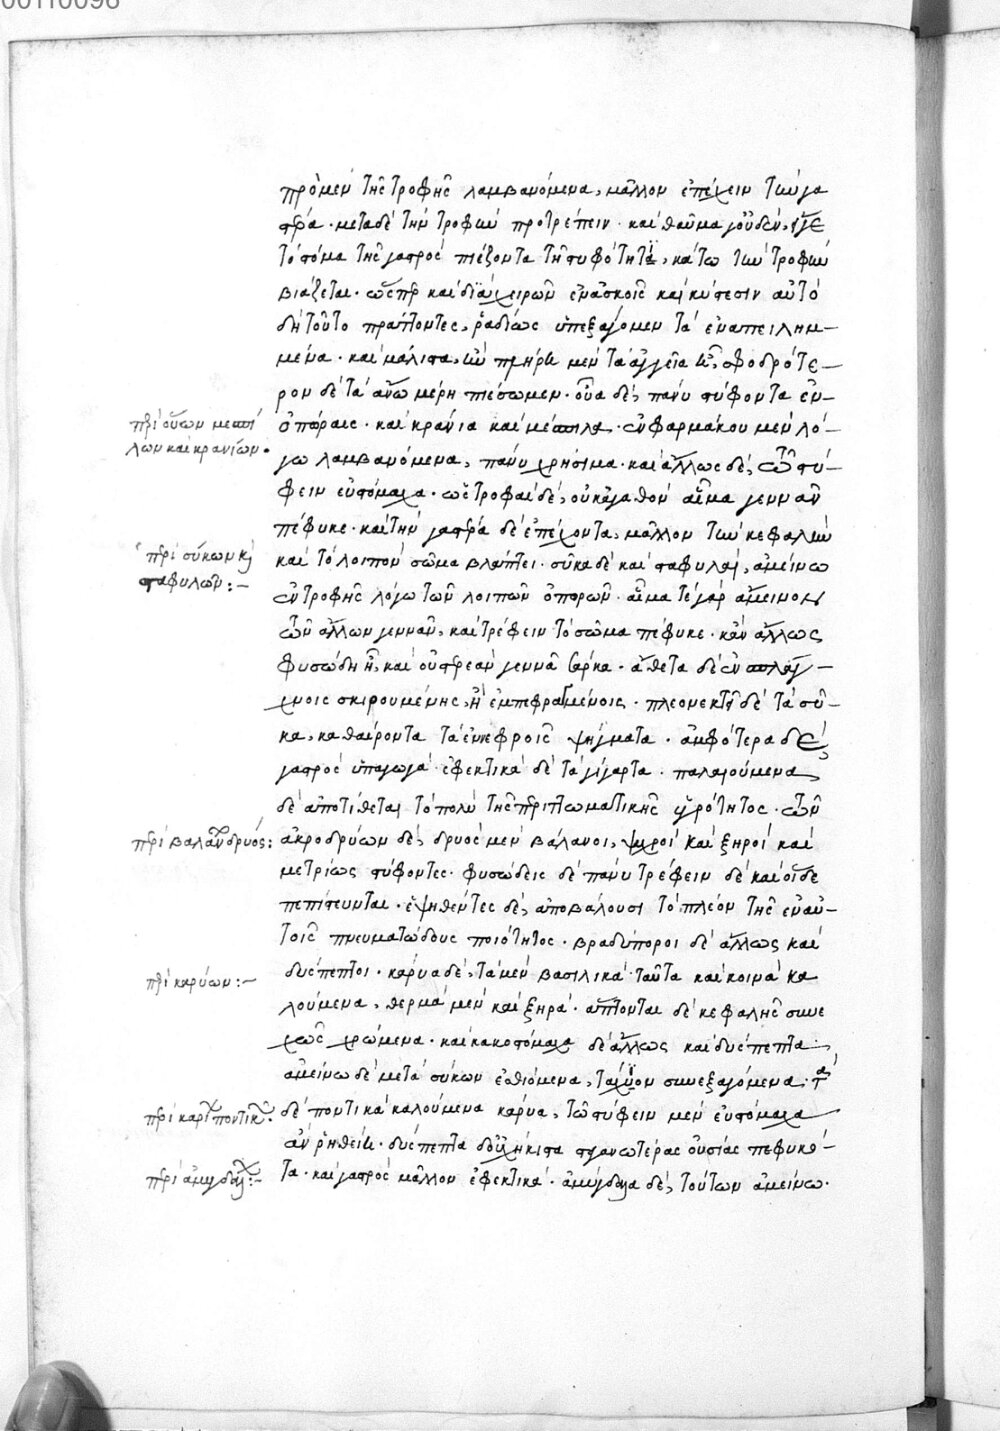 πρὸ μὲν τῆς τροφῆς λαμβανόμενα, μᾶλλον ἐπέχειν τὴν γα
στέρα· μετὰ δὲ τὴν τροφὴν προτρέπειν· καὶ θαῦμα γ' οὐδέν, εἴγε
τὸ στόμα τῆς γαστρὸς πιέζοντα τῇ στυφότητι, κάτω τὴν τροφὴν
βιάζεται· ὥσπερ καὶ διὰ χειρῶν ἐν ἀσκοῖς καὶ κύστεσιν αὐτὸ
δὴ τοῦτο πράττοντες, ῥαδίως ὑπεξάγομεν τὰ ἐναπειλημ-
μένα· καὶ μάλιστα, ἂν πλήρη μὲν τὰ ἀγγεῖα ᾖ, σφοδρότε-
ρον δὲ τὰ ἄνω μέρη πιέσωμεν· οὖα δὲ, πάνυ στύφοντα ἐν
ὀπώραις· καὶ κράνια καὶ μέσπιλα· ἐν φαρμάκου μὲν λό-
γω λαμβανόμενα, πάνυ χρήσιμα· καὶ ἄλλως δὲ, τῶ στύ-
φειν εὐστόμαχα· ὡς τροφαὶ δὲ, οὐκ ἀγαθὸν αἷμα γεννᾶν
πέφυκε· καὶ τὴν γαστέρα δὲ ἐπέχοντα, μᾶλλον τὴν κεφαλὴν
καὶ τὸ λοιπὸν σῶμα βλάπτει· σῦκα δὲ καὶ σταφυλαὶ, ἀμείνω
ἐν τροφῆς λόγω τῶν λοιπῶν ὀπωρῶν· αἷμα τὲ γὰρ ἄμεινον
τῶν ἄλλων γεννᾶν, καὶ τρέφειν τὸ σῶμα πέφυκε· κἂν ἄλλως
φυσώδη ᾖ, καὶ οὐ στερεὰν γεννᾶ σάρκα· ἄθετα δὲ ἐν σπλάγ-
χνοις σκιρουμένοις, ἢ ἐμπεφραγμένοις· πλεονεκτεῖ δὲ τὰ σῦ-
κα, καθαίροντα τὰ ἐν νεφροῖς ψήγματα· ἀμφότερα δὲ
γαστρὸς ὑπαγωγά· ἐφεκτικὰ δὲ τὰ γίγαρτα· παλαιούμενα
δὲ ἀποτίθεται τὸ πολὺ τῆς περιττωματικῆς ὑγρότητος· τῶν
ἀκροδρύων δὲ, δρυὸς μὲν βάλανοι, ψυχροὶ καὶ ξηροὶ καὶ
μετρίως στύφοντες· φυσώδεις δὲ πάνυ τρέφειν δὲ καὶ οἵδε
πεπίστευνται· ἑψηθέντες δὲ, ἀποβάλουσι τὸ πλέον τῆς ἐν αὐ-
τοῖς πνευματώδους ποιότητος· βραδύποροι δὲ ἄλλως καὶ
δύσπεπτοι· κάρυα δὲ, τὰ μὲν βασιλικὰ ταῦτα καὶ κοινὰ κα
λούμενα, θερμὰ μὲν καὶ ξηρά· ἅπτονται δὲ κεφαλῆς συνε
χῶς χρώμενα· καὶ κακοστόμαχα δὲ ἄλλως καὶ δύσπεπτα·
ἀμείνω δὲ μετὰ σύκων ἐσθιόμενα, τάχϊον συνεξαγόμενα· τὰ
δὲ ποντικὰ καλούμενα κάρυα, τῶ στύφειν μὲν εὐστόμαχα
ἂν ῥηθείη· δύσπεπτα δ' οὐχ ἥκιστα στεγανωτέρας οὐσίας πεφυκό-
τα· καὶ γαστρὸς μᾶλλον ἐφεκτικά· ἀμύγδαλα δὲ, τούτων ἀμείνω·
περὶ οὔων μεσπί
λων καὶ κρανίων·
περὶ σύκων καὶ
σταφυλῶν:-
περὶ βαλάνων δρυός:
περὶ καρύων:-
περὶ καρύων ποντικῶν·
περὶ ἀμυγδάλων:-